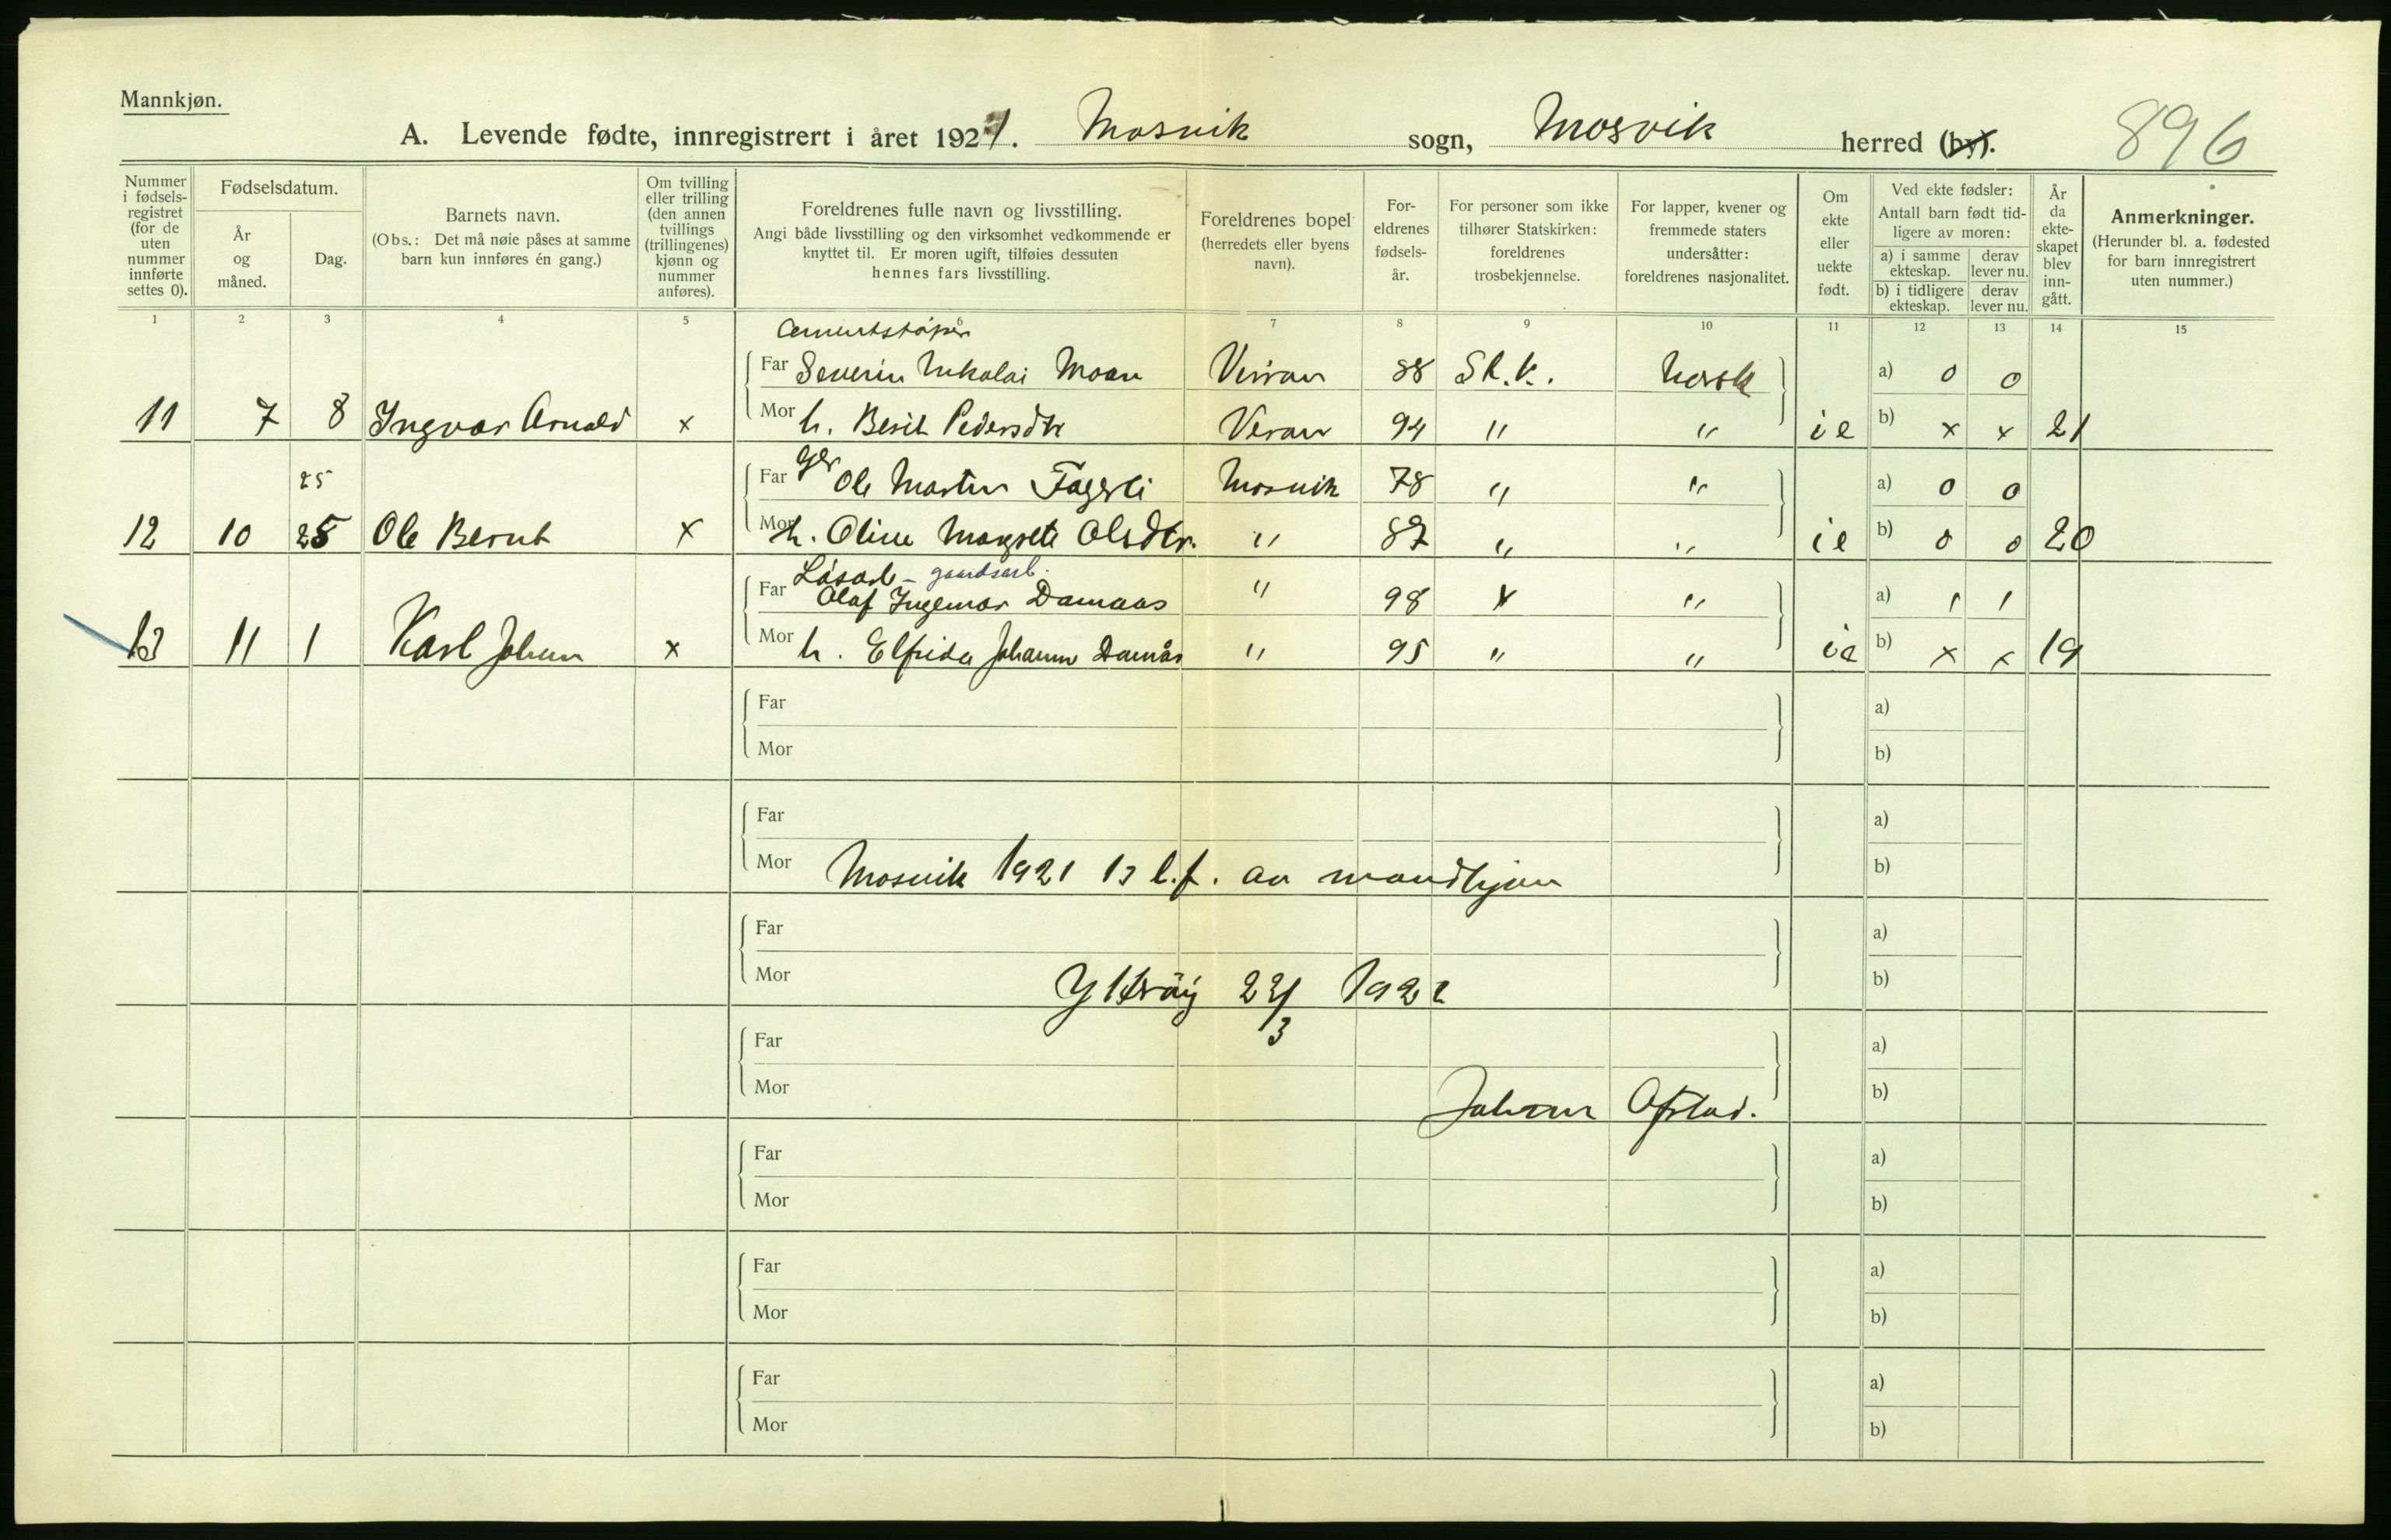 Mannkjøn.
A. Levende fødte, innregistrert i året 1921. Mosvik sogn, Mosvik herred (by). 896
Nummer i fødsels-registret (for de uten nummer innførte settes 0).
Fødselsdatum.
År og måned.
Dag.
Barnets navn.
(Obs.: Det må nøie påses at samme barn kun innføres én gang.)
Om tvilling eller trilling (den annen tvillings (trillingenes) kjønn og nummer anføres).
Foreldrenes fulle navn og livsstilling.
Angi både livsstilling og den virksomhet vedkommende er knyttet til. Er moren ugift, tilføies dessuten hennes fars livsstilling.
Foreldrenes bopel (herredets eller byens navn).
For-eldrenes fødsels-år.
For personer som ikke tilhører Statskirken: foreldrenes trosbekjennelse.
For lapper, kvener og fremmede staters undersåtter: foreldrenes nasjonalitet.
Om ekte eller uekte født.
Ved ekte fødsler:
Antall barn født tid-ligere av moren:
a) i samme ekteskap. derav lever nu.
b) i tidligere ekteskap. derav lever nu.
År da ekte-skapet blev inn-gått.
Anmerkninger.
(Herunder bl. a. fødested for barn innregistrert uten nummer.)
1 2 3 4 5 6 7 8 9 10 11 12 13 14 15
Cementstøper
Far Severin Nikolai Moan Verran 88 St.k. Norsk a) 0 0
11 7 8 Ingvar Arnold x Mor h. Berit Pedersdtr Veran 94 " " ie b) x x 21
25 Far Ger Ole Martin Fagerli Mosvik 78 " " a) 0 0
12 10 25 Ole Bernt x Mor h. Oline Margrete Olsdtr. " 87 " " ie b) 0 0 20
Løsarb – gaardsarb.
Far Olaf Ingemar Damaas " 98 x " a) 1 1
13 11 1 Karl Johan x Mor h. Elfrida Johanne Damås " 95 " " ie b) x x 19
Far a)
Mor b)
Far a)
Mor Mosvik 1921 13 l.f. av mandkjøn b)
Far a)
Mor Ytterøy 22/3 1922 b)
Far a)
Mor Johan Ofstad. b)
Far a)
Mor b)
Far a)
Mor b)
Far a)
Mor b)